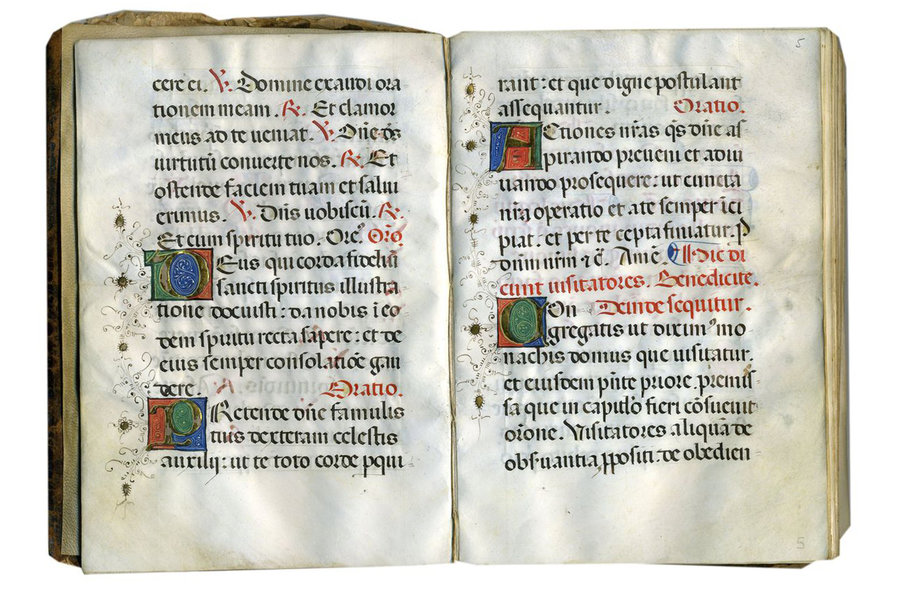 cere ei. ℣. Domine exaudi ora
tionem meam. ℟. Et clamor
meus ad te veniat. ℣. Dñe ds̄
virtutū converte nos. ℟. Et
ostende faciem tuam et salvi
erimus. ℣. Dñs vobiscū. ℟.
Et cum spiritu tuo. Orem̃. Orõ
Deus qui corda fideliū
sancti spiritus illustra
tione docuisti: da nobis ī eo
dem spiritu recta sapere: et de
eius semper consolatiõe gau
dere. Oratio.
Pretende dñe famulis
tuis dexteram celestis
auxilij: ut te toto corde pqui
5
rant: et que digne postulant
assequantur. Oratio.
Actiones nr̃as qs dñe as
pirando preveni et adiu
vando prosequere: ut cuncta
nr̃a operatio et a te semper īci
piat: et per te cepta finiatur. P
dñm nr̃m ⁊ c̃. Amẽ. Hic di
cunt visitatores. Benedicite.
Con Deinde sequitur.
gregatis ut diximꝰ mo
nachis domus que visitatur.
et eiusdem pñte priore. premis
sa que in capitulo fieri cõsuevit
orõne. Visitatores aliqua de
obsvantia ppositi: de obedien
5